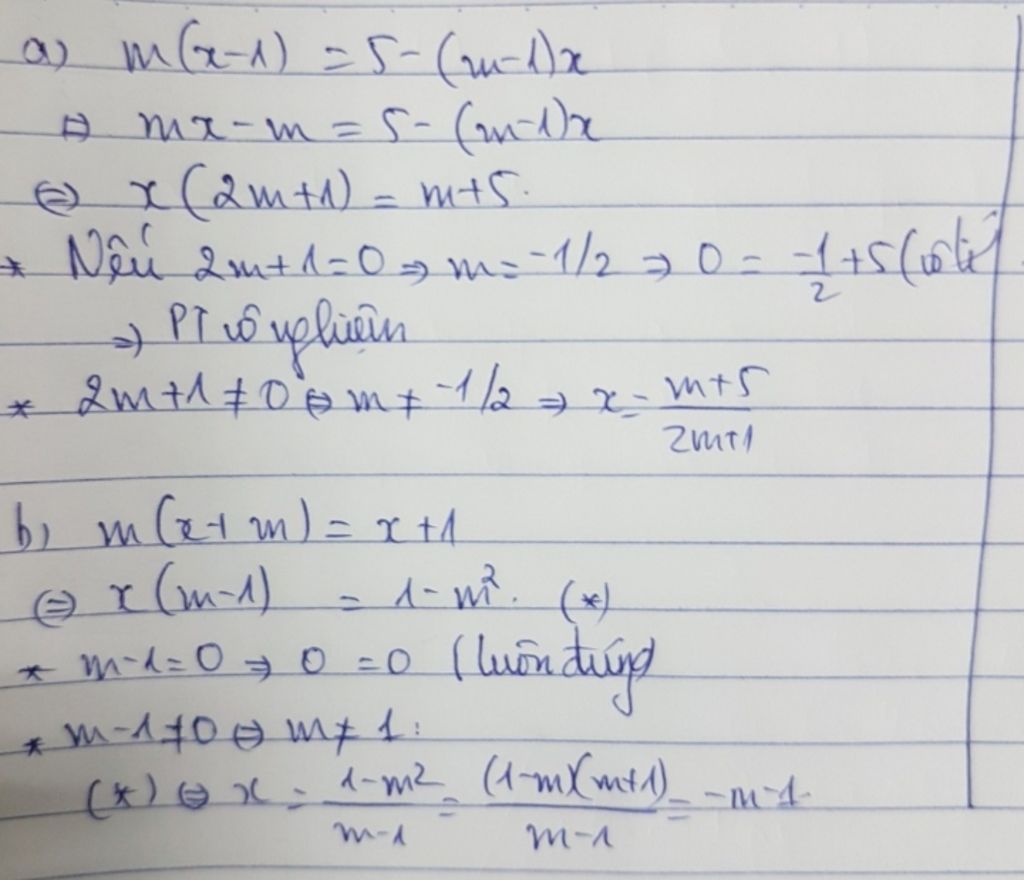 a) m(x-1) = 5-(m-1)x
⇔ mx-m = 5-(m-1)x
⇔ x(2m+1) = m+5.
* Nếu 2m+1=0 ⇒ m=-1/2 ⇒ 0 = -1/2 +5 (vô lí)
⇒ PT vô nghiệm
* 2m+1≠0 ⇔ m≠-1/2 ⇒ x = m+5/2m+1
b) m(x+m) = x+1
⇔ x(m-1) = 1-m². (*)
* m-1=0 ⇒ 0=0 (luôn đúng)
* m-1≠0 ⇔ m≠1:
(*) ⇔ x = 1-m²/m-1 = (1-m)(m+1)/m-1 = -m-1